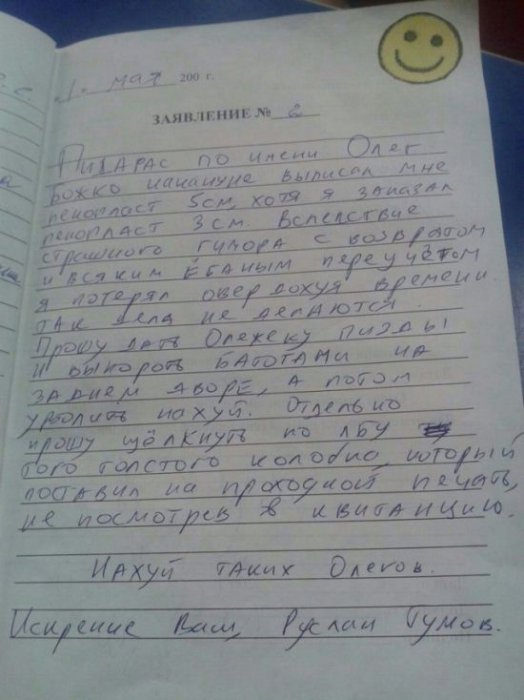 1. мая 200 г.
ЗАЯВЛЕНИЕ № 2
Пидарас по имени Олег
Божко накануне выписал мне
пенопласт 5см, хотя я заказал
пенопласт 3см. Вследствие
страшного гимора с возвратом
и всяким ёбаным переучётом
я потерял овердохуя времени.
Так дела не делаются.
Прошу дать Олежеку пизды
и выпороть батогами на
заднем дворе, а потом
уволить нахуй. Отдельно
прошу щёлкнуть по лбу
того толстого колобка, который
поставил на проходной печать,
не посмотрев в квитанцию.
Нахуй таких Олегов.
Искренне Ваш, Руслан Гумов.